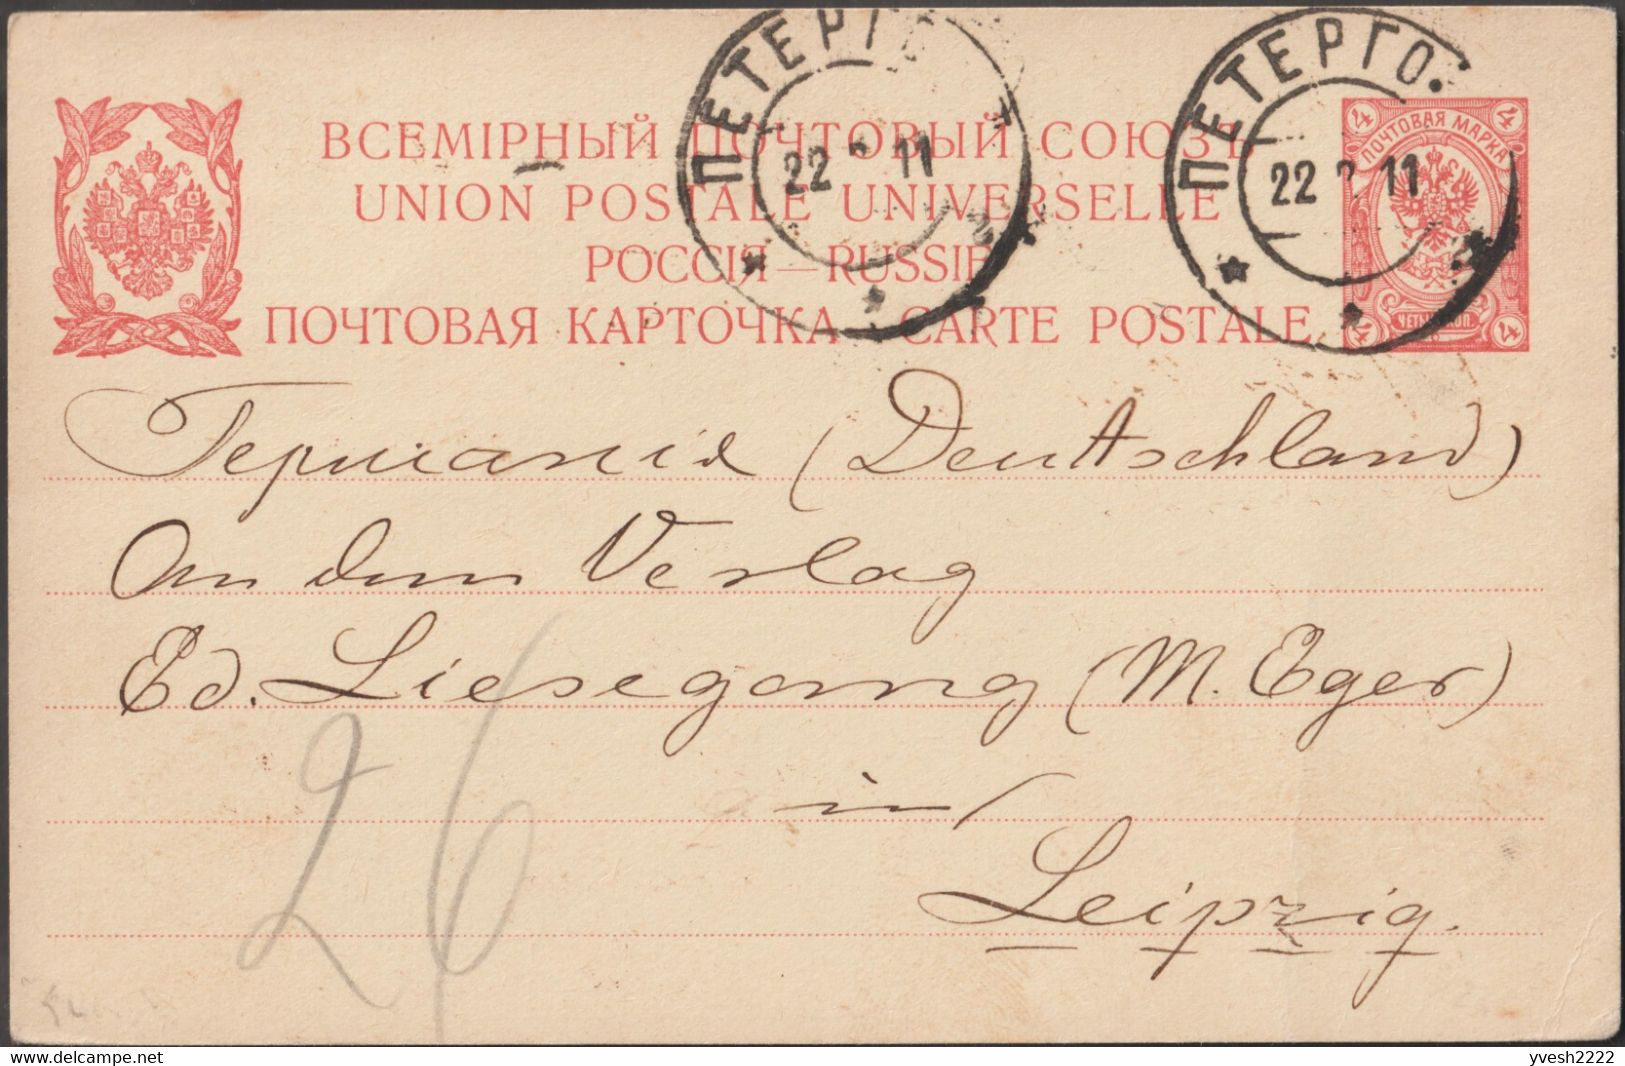 ПЕТЕРГО
22 11
ПЕТЕРГО.
22 11
ВСЕМІРНЫЙ ПОЧТОВЫЙ СОЮЗЪ
UNION POSTALE UNIVERSELLE
РОССІЯ — RUSSIE
ПОЧТОВАЯ КАРТОЧКА — CARTE POSTALE
4 4
ПОЧТОВАЯ МАРКА
4 4
Германія (Deutschland)
An den Verlag
Ed. Liesegang (M. Eger)
in
Leipzig.
26
yvesh2222